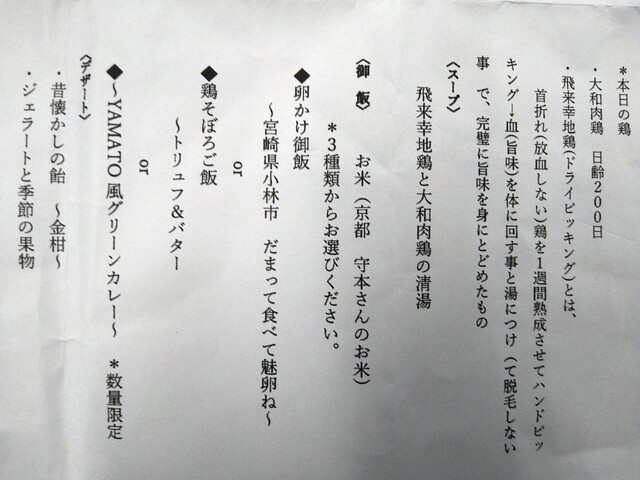 ＊本日の鶏
・大和肉鶏　日齢２００日
・飛来幸地鶏（ドライピッキング）とは、
首折れ（放血しない）鶏を１週間熟成させてハンドピッ
キング→血（旨味）を体に回す事と湯につけ（て脱毛しない
事　で、完璧に旨味を身にとどめたもの
〈スープ〉
飛来幸地鶏と大和肉鶏の清湯
〈御　飯〉　お米（京都　守本さんのお米）
＊３種類からお選びください。
◆卵かけ御飯
～宮崎県小林市　だまって食べて魅卵ね～
or
◆鶏そぼろご飯
～トリュフ＆バター
or
◆～YAMATO 風グリーンカレー～　＊数量限定
〈デザート〉
・昔懐かしの飴　～金柑～
・ジェラートと季節の果物